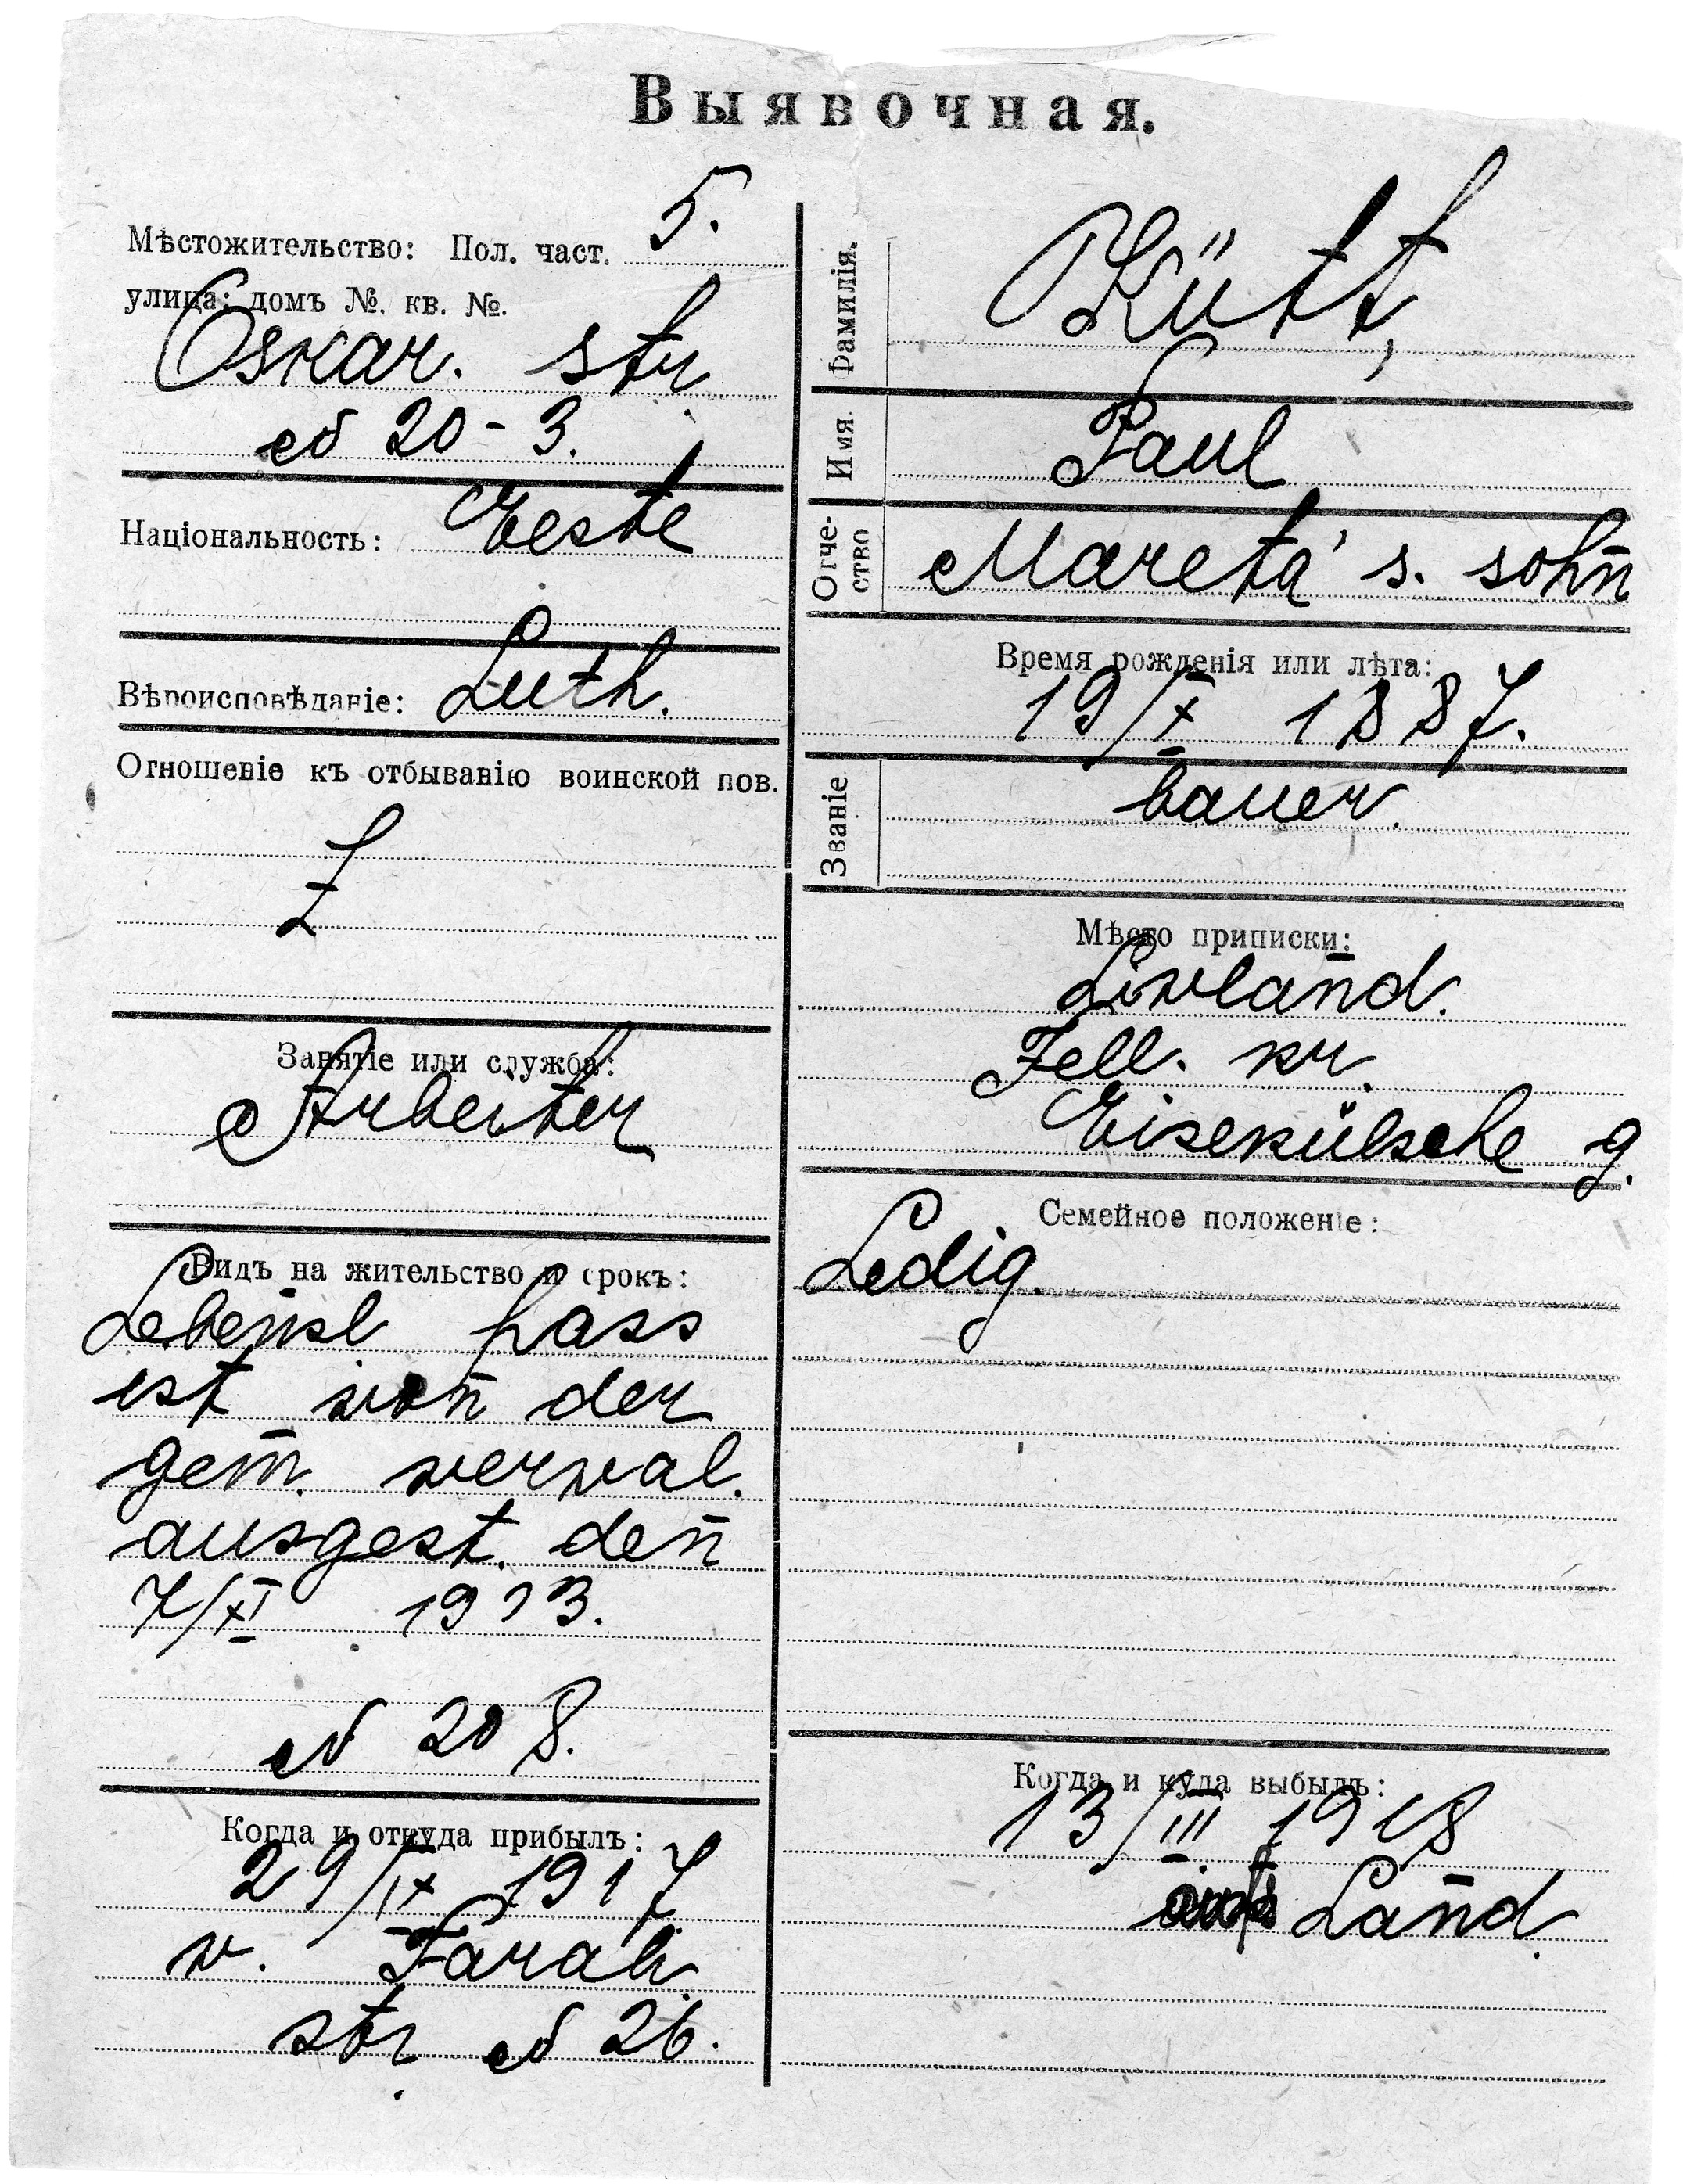 Выявочная.
Мѣстожительство: Пол. част. 5.
улица; домъ №. кв. №.
Oskar. str
№ 20 - 3.
Національность: Eeste
Вѣроисповѣданіе: Luth.
Отношеніе къ отбыванію воинской пов.
Занятіе или служба:
Arbeiter
Видъ на жительство и срокъ:
Lebensl pass
ist von der
gem. verval.
ausgest. den
7/XI 1913.
№ 208.
Когда и откуда прибылъ:
29/IX 1917
v.
str № 26.
Фамилія. Kütt,
Имя. Paul
Отче-
ство
Mareta's. sohn
Время рожденія или лѣта:
19/X 1887.
Званіе bauer.
Мѣсто приписки:
Livland.
Fell. kr.
Eisekülsche g.
Семейное положеніе:
Ledig.
Когда и куда выбылъ:
13/III 1918
aufs Land.